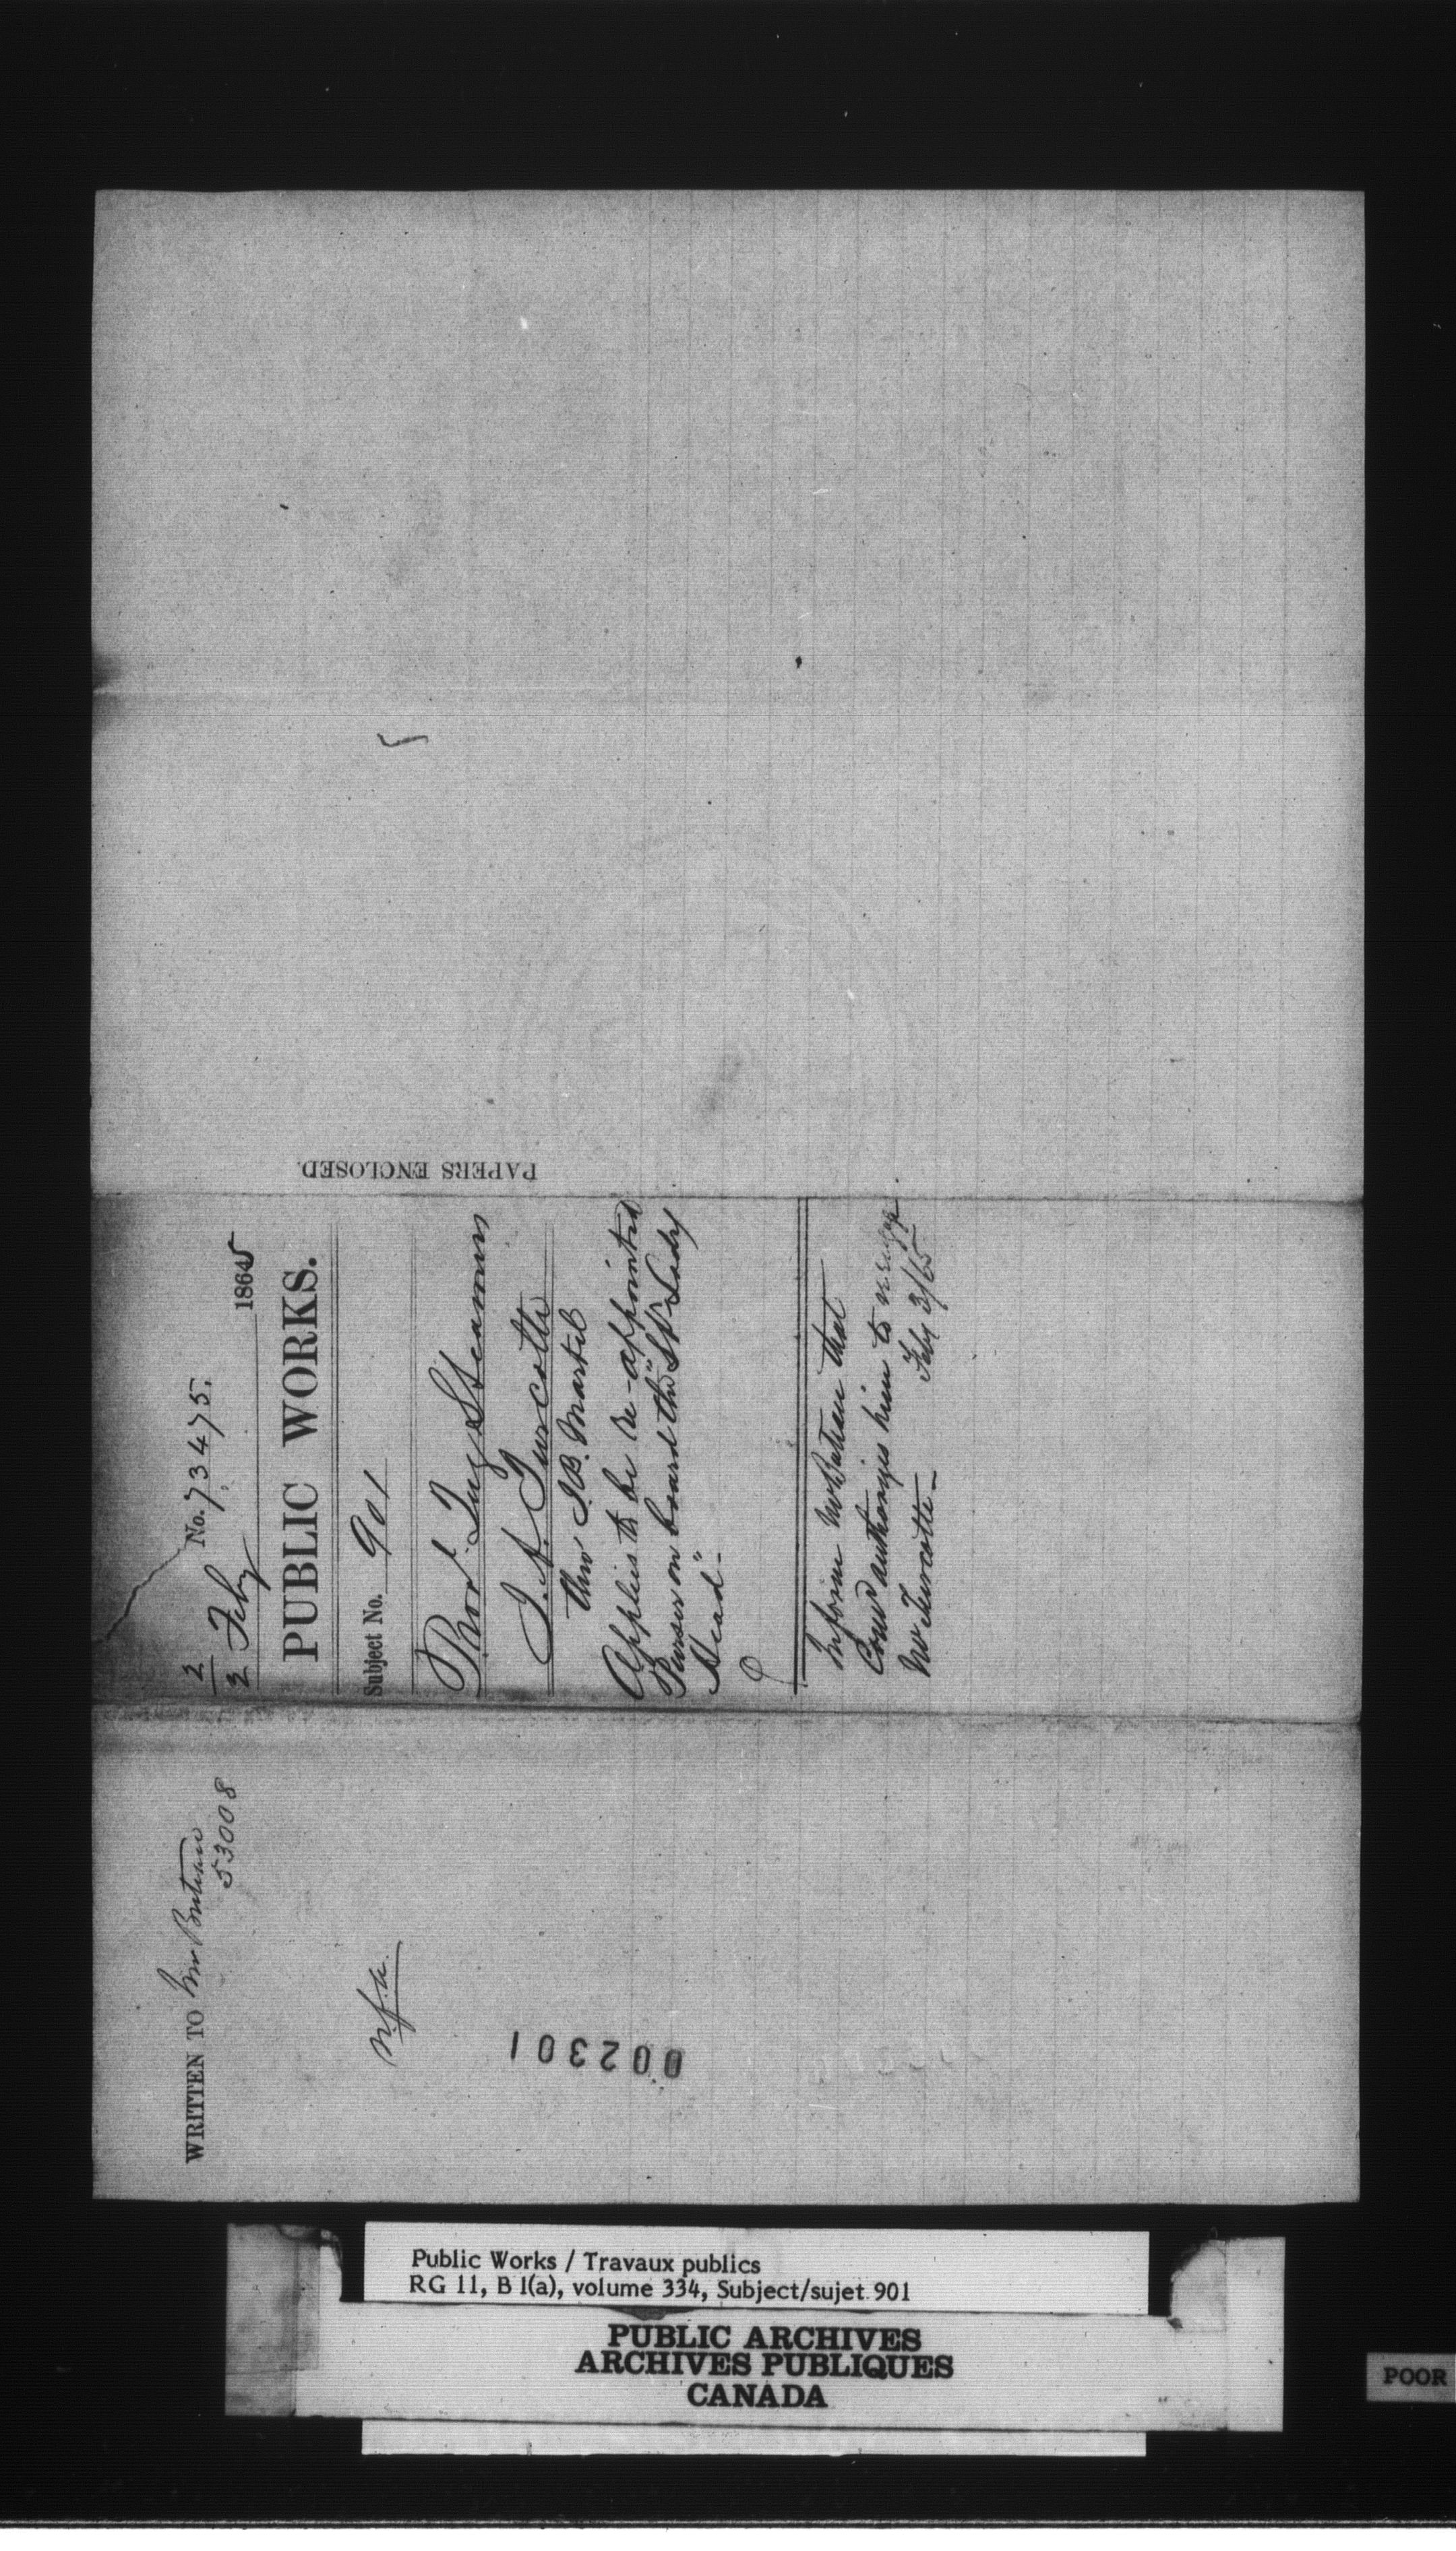 WRITTEN TO Mr Buteau
53008
n.f.a.
002301
2
2 Feby 1865
No. 73475.
PUBLIC WORKS.
Subject No. 901
Provl. Tug Steamers
J. A. Turcotte
thro' J. B. Martel
Applies to be re-appointed
Purser on board the "Str Lady
Head"-
Inform Mr Buteau that
Comr authorizes him to
Mr Turcotte - Feby 3/65
PAPERS ENCLOSED.
Public Works / Travaux publics
RG 11, B 1(a), volume 334, Subject/sujet 901
PUBLIC ARCHIVES
ARCHIVES PUBLIQUES
CANADA
POOR